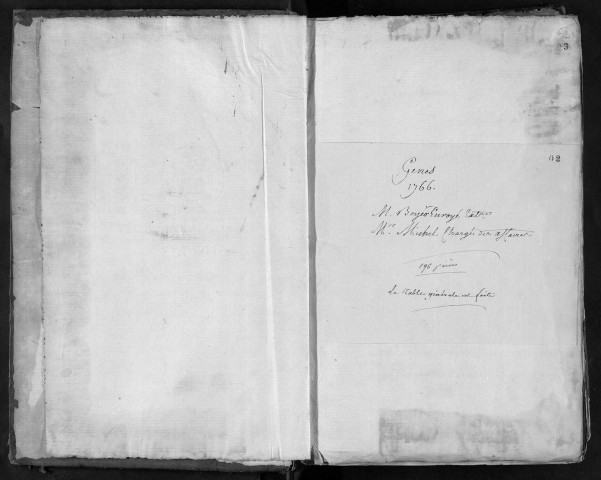 3
62
Genes
1766.
M. Boyer Envoyé Extre
Mr. Michel Chargé des affaires
196 pièces
La Table générale est faite